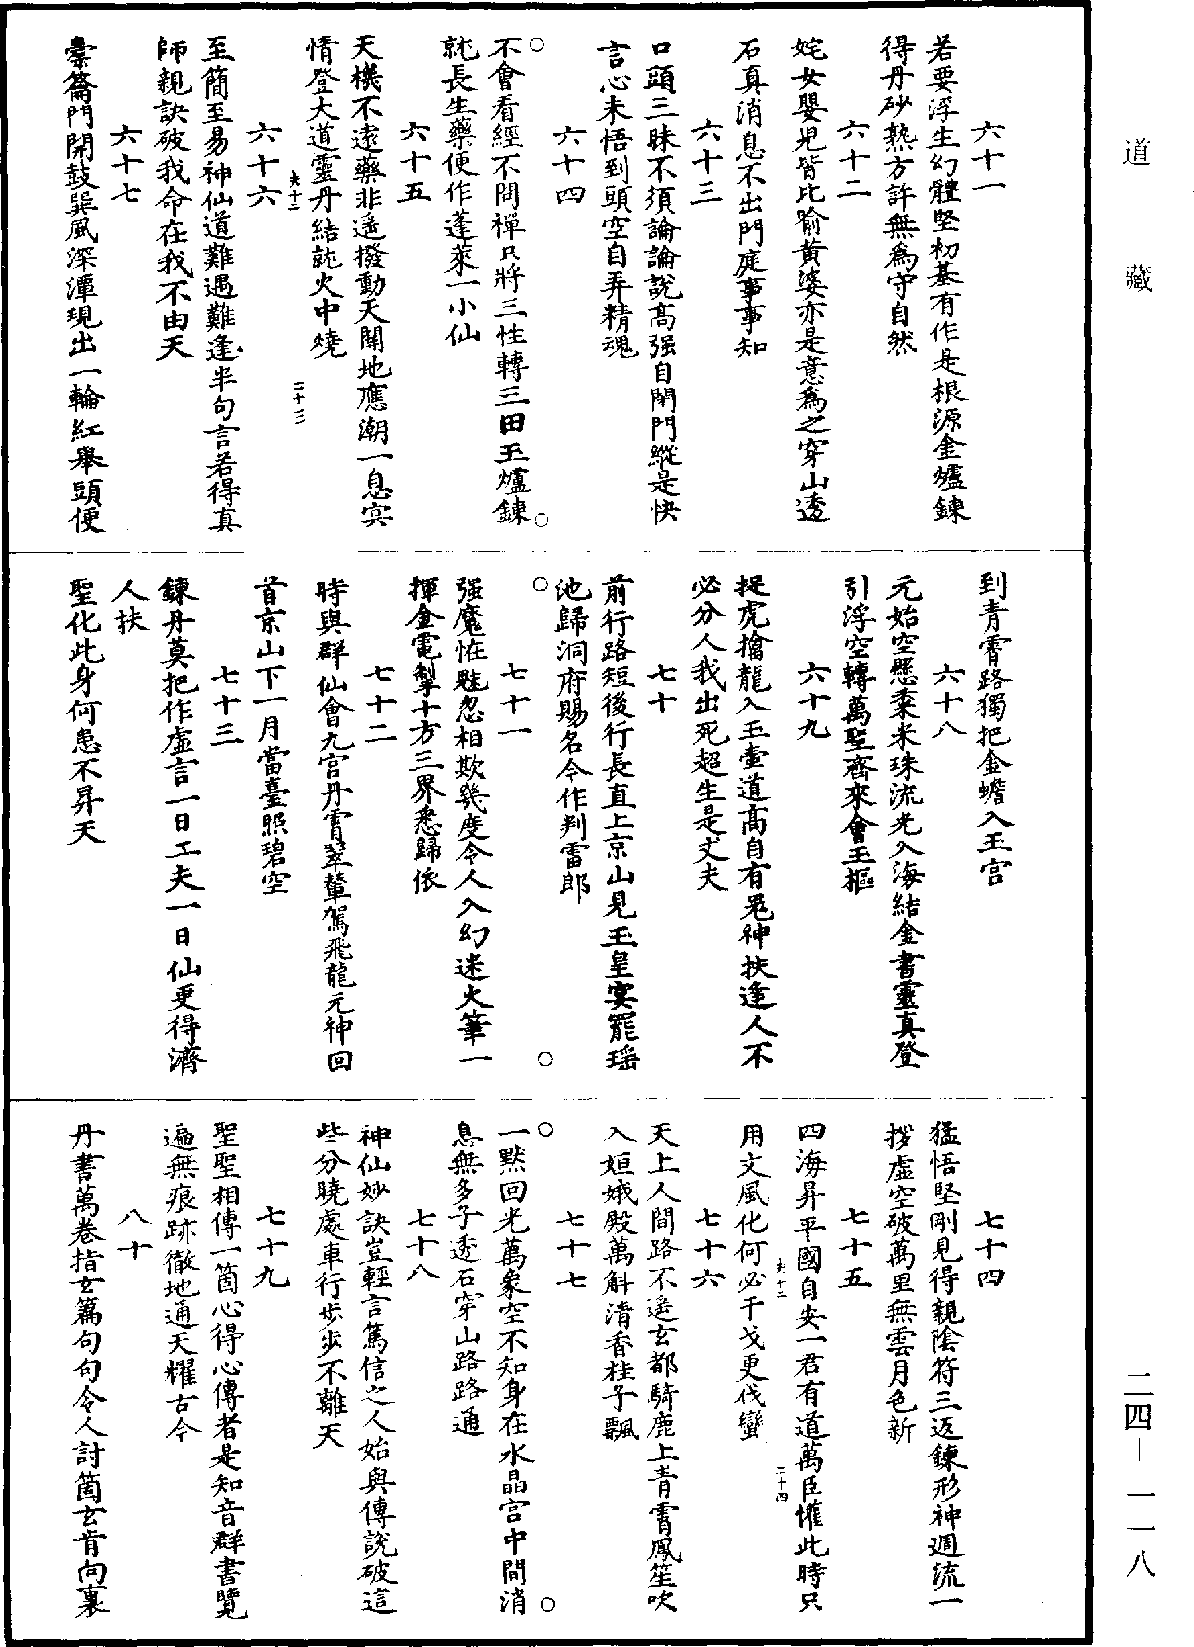 道藏
六十一
若要浮生幻體堅初基有作是根源金爐鍊
得丹砂熟方許無為守自然
六十二
姹女嬰兒皆比喻黃婆亦是意為之穿山透
石真消息不出門庭事事知
六十三
口頭三昧不須論論說高强自閉門縱是快
言心未悟到頭空自弄精魂
六十四
○不會看經不問禪只將三性轉三田玉爐鍊○
就長生藥便作蓬萊一小仙
六十五
天機不遠藥非遙撥動天關地應潮一息㝠
情登大道靈丹結就火中燒
夫十二
二十三
六十六
至簡至易神仙道難遇難逢半句言若得真
師親訣破我命在我不由天
六十七
橐籥門開鼓巽風深潭現出一輪紅舉頭便
到青霄路獨把金蟾入玉宮
六十八
元始空懸黍米珠流光入海結金書靈真登
引浮空轉萬聖齊來會玉樞
六十九
捉虎擒龍入玉壺道高自有鬼神扶逢人不
必分人我出死超生是丈夫
七十
前行路短後行長直上京山見玉皇宴罷瑶
池歸洞府賜名令作判雷郎
七十一
○强魔恠魅忽相欺幾度令人入幻迷火筆一○
揮金電掣十方三界悉歸依
七十二
時與群仙會九宮丹霄翠輦駕飛龍元神回
首京山下一月當臺照碧空
七十三
鍊丹莫把作虛言一日工夫一日仙更得濟
人扶
聖化此身何患不昇天
七十四
猛悟堅剛見得親陰符三返鍊形神週流一
拶虛空破萬里無雲月色新
七十五
四海昇平國自安一君有道萬臣懽此時只
用文風化何必干戈更伐蠻
夫十二
二十四
七十六
天上人間路不遙玄都騎鹿上青霄鳳笙吹
入姮娥殿萬斛清香桂子飄
七十七
○一點回光萬象空不知身在水晶宮中間消○
息無多子透石穿山路路通
七十八
神仙妙訣豈輕言篤信之人始與傳說破這
些分曉處車行步步不離天
七十九
聖聖相傳一箇心得心傳者是知音群書覽
遍無痕跡徹地通天耀古今
八十
丹書萬卷指玄篇句句令人討箇玄肯向裏
二四—一一八